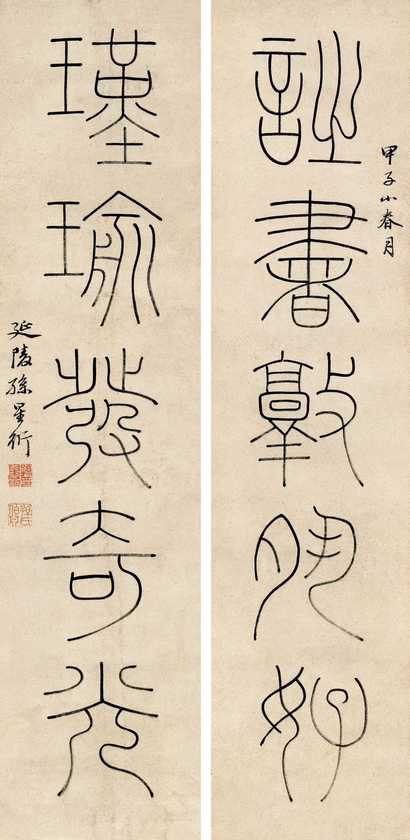 甲子小春月
詩書敦夙好
瑾瑜發奇光
延陵孫星衍